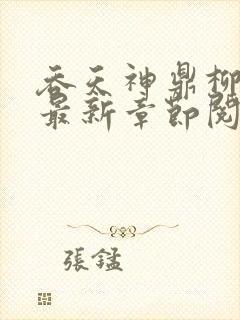 吞天神鼎柳
最新章節閱
張錳